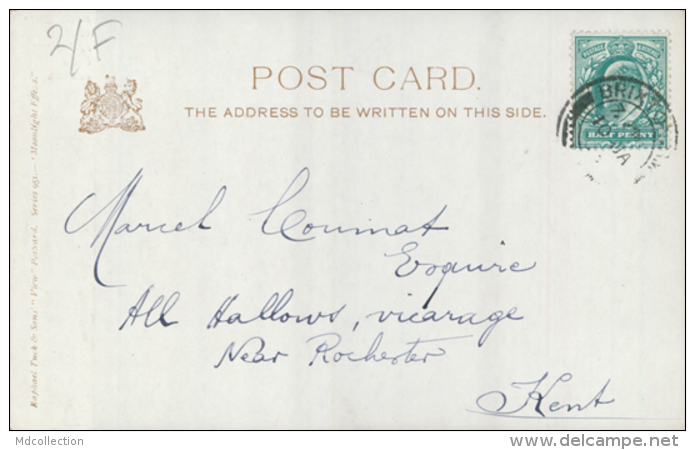 2/F
POST CARD.
THE ADDRESS TO BE WRITTEN ON THIS SIDE.
POSTAGE & REVENUE
HALF PENNY
BRIXTON
Marcel Coumat
Esquire
All Hallows, vicarage
Near Rochester
Kent
Raphael Tuck & Sons' "View" Postcard. Series 951.—"Moonlight Effects"
Mdcollection
delcampe.net